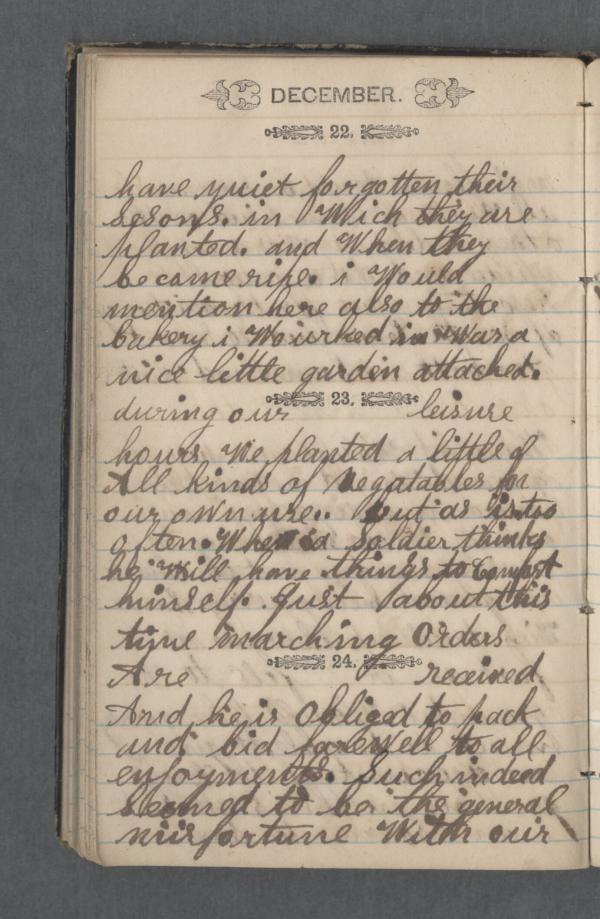 DECEMBER.
22.
have quiet forgotten their
sesons. in Wich they are
planted. and When they
became ripe. i Would
mention here also to the
bakery i Wourked in Was a
nice little garden attached.
23.
during our leisure
hours We planted a little of
All kinds of Vegatables for
our own use.. but as is too
often. When a Soldier thinks
he Will have things to Comfort
himself. Just about this
time marching Orders
24.
Are received
And he is Obliged to pack
and bid farewell to all
enjoyments. Such indeed
seemed to be the general
misfortune With our